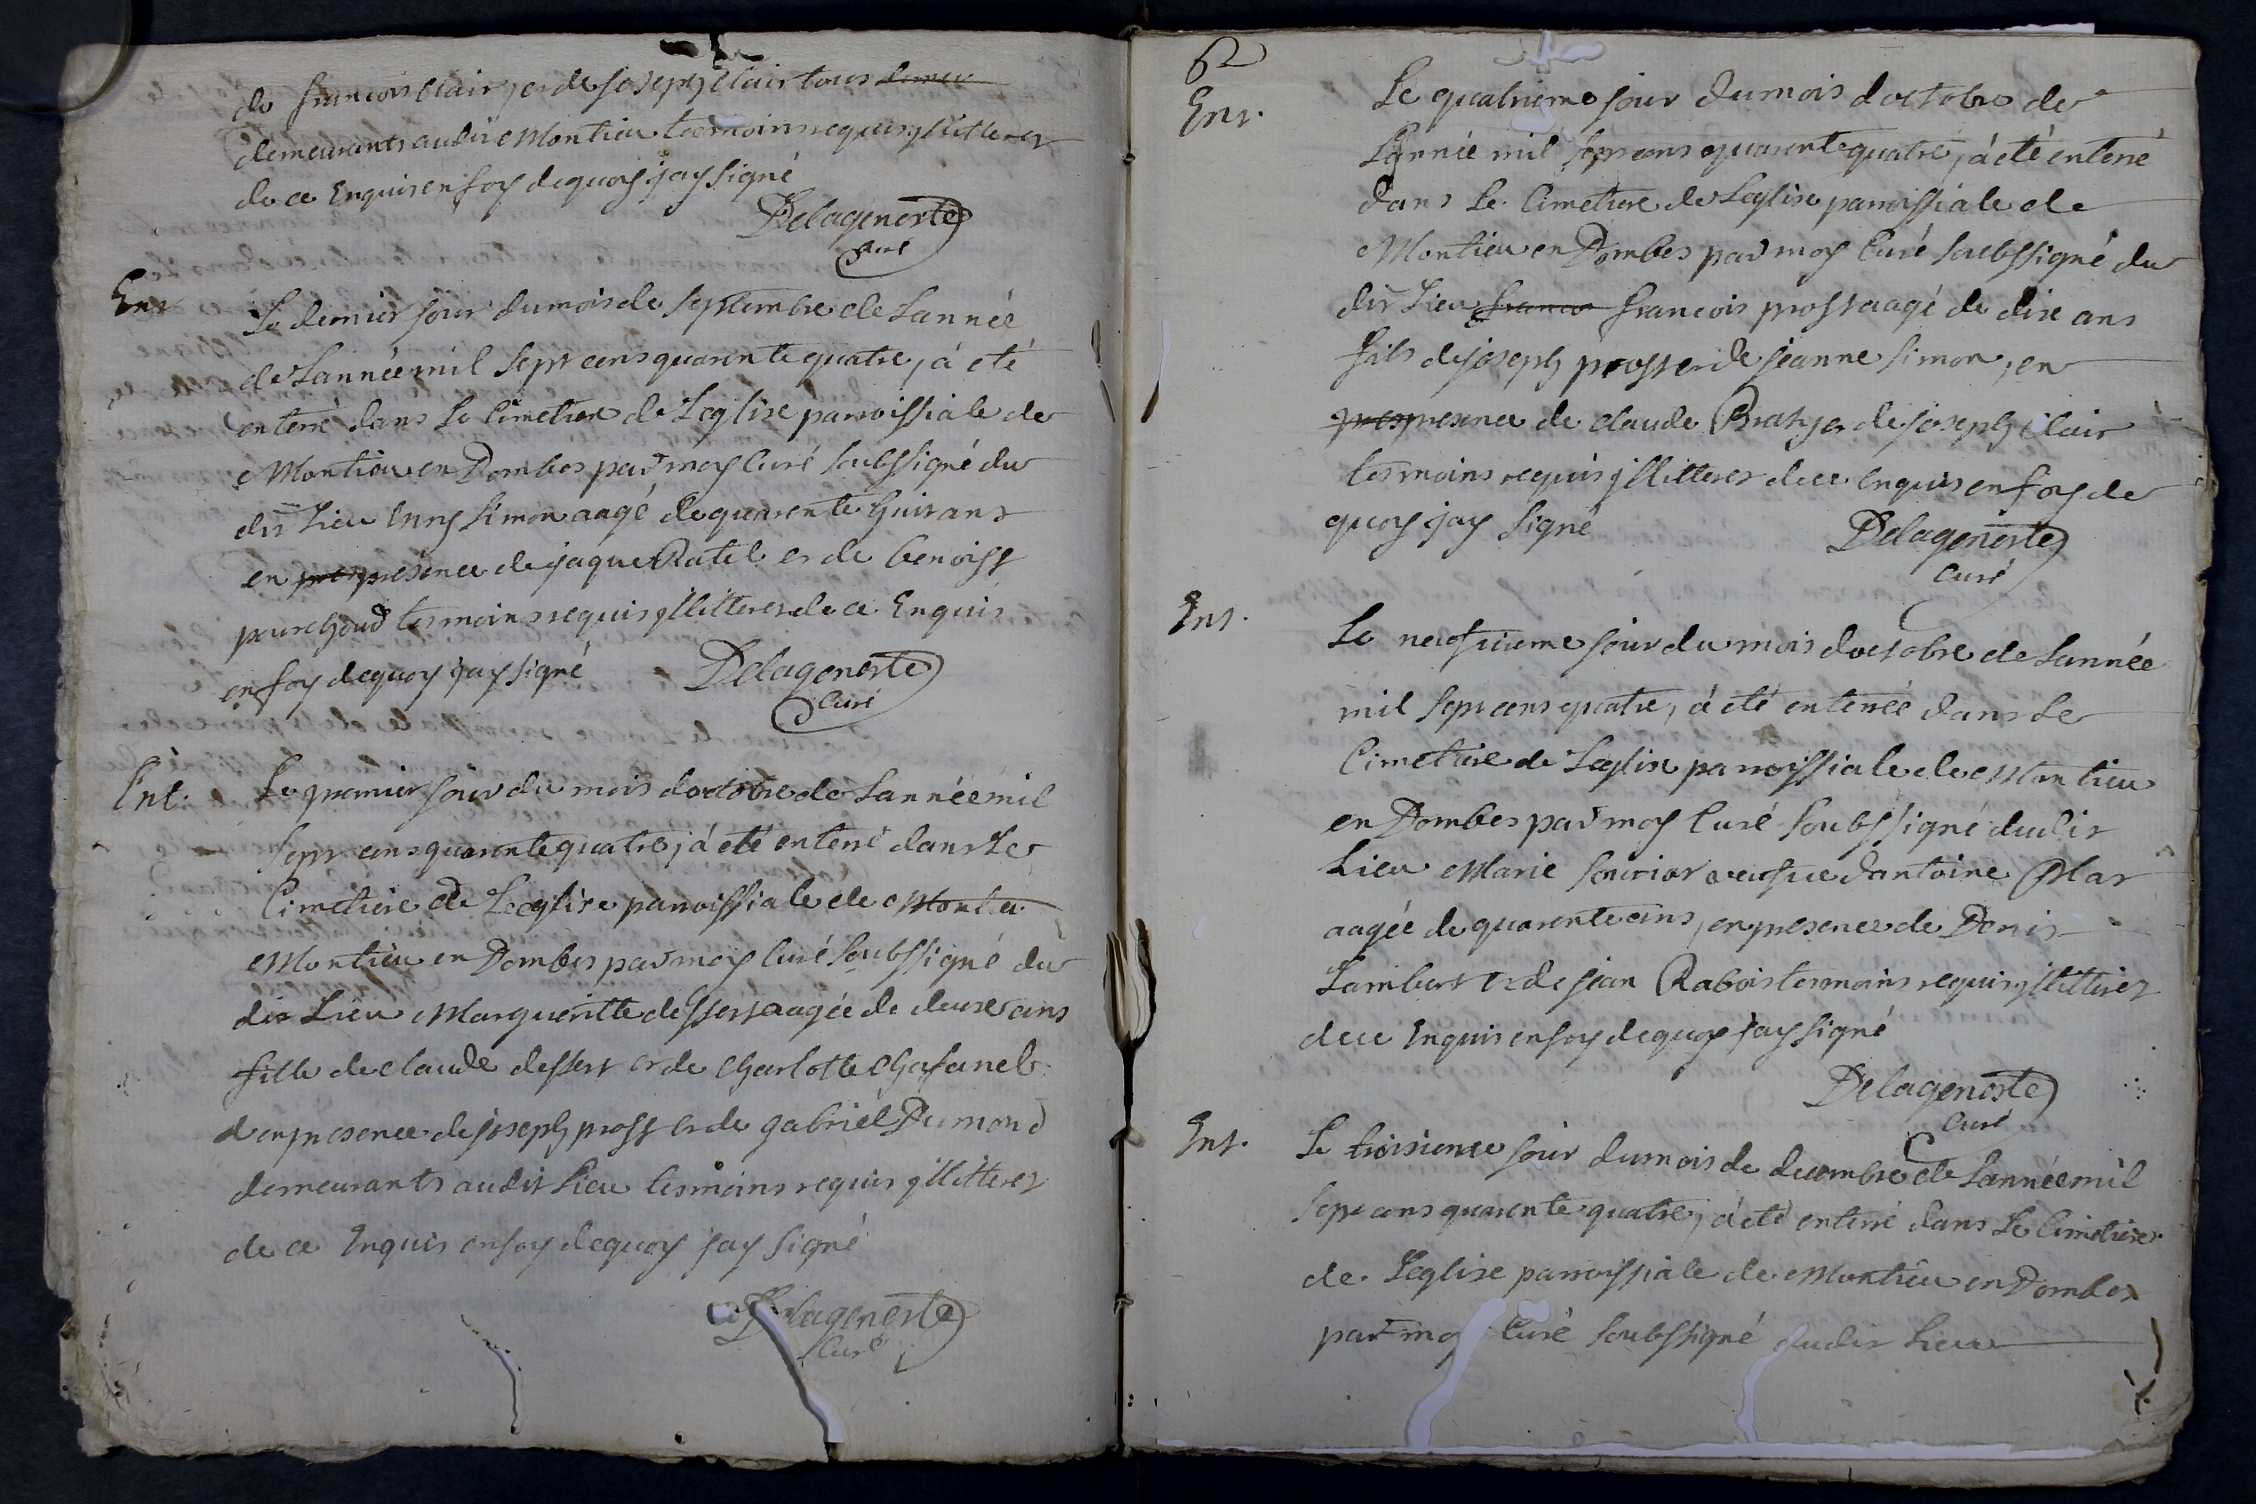 de francois Clair, et de joseph Clair tous demeu
demeurants audit Montieu tesmoins requis illiterez
de ce Enquis en foy de quoy jay signé
Delageneste
Curé
Ent
Le dernier jour du mois de septembre de Lannée
de Lannée mil sept cens quarente quatre, á eté
enterré dans Le Cimetiere de Leglise parroissiale de
Montieu en Dombes par moy Curé soubssigné du
dit Lieu simon aagé de quarente huit ans
en pres presence de jaque Ratel et de benoist
pourchoud tesmoins requis illiterez de ce Enquis
en foy de quoy jay signé Delageneste
Curé
Ent.
Le premier jour du mois doctobre de Lannée mil
sept cens quarente quatre, á eté enterré dans Le
Cimetiere de Leeglise parroissiale de Montieu
Montieu en Dombes par moy Curé soubssigné du
dit Lieu Margueritte dessert aagée de deuxe ans
fille de claude dessert et de charlotte chafanel
en presence de joseph prost et de gabriel Dumond
demeurants audit Lieu tesmoins requis illiterez
de ce Enquis en foy de quoy jay signé
Delageneste
Curé
62
Ent.
Le quatrieme jour du mois doctobre de
Lannée mil sept cens quarente quatre, á eté enterré
dans Le Cimetiere de Leglise parroissiale de
Montieu en Dombes par moy Curé soubssigné du
dit Lieu francoi francois prost aagé de dixe ans
fils de joseph prost et de jeanne simon, en
pres presence de claude et de joseph Clair
tesmoins requis illiterez de ce enquis en foy de
quoy jay signé Delageneste
Curé
Ent.
Le neufvieme jour du mois doctobre de Lannée
mil sept cens quatre, á eté enterrée dans Le
Cimetiere de Leglise parroissiale de Montieu
en Dombes par moy Curé soubssigné dudit
Lieu Marie veufve dantoine
aagée de quarente ans, en presence de Denis
Lambert et de jean Rabois tesmoins requis illiterez
de ce Enquis en foy de quoy jay signé
Delageneste
Curé
Ent.
Le troisieme jour du mois de decembre de Lannée mil
sept cens quarente quatre, á eté enterré dans Le Cimetiere
de Leglise parroissiale de Montieu en Dombes
par moy Curé soubssigné dudit Lieu